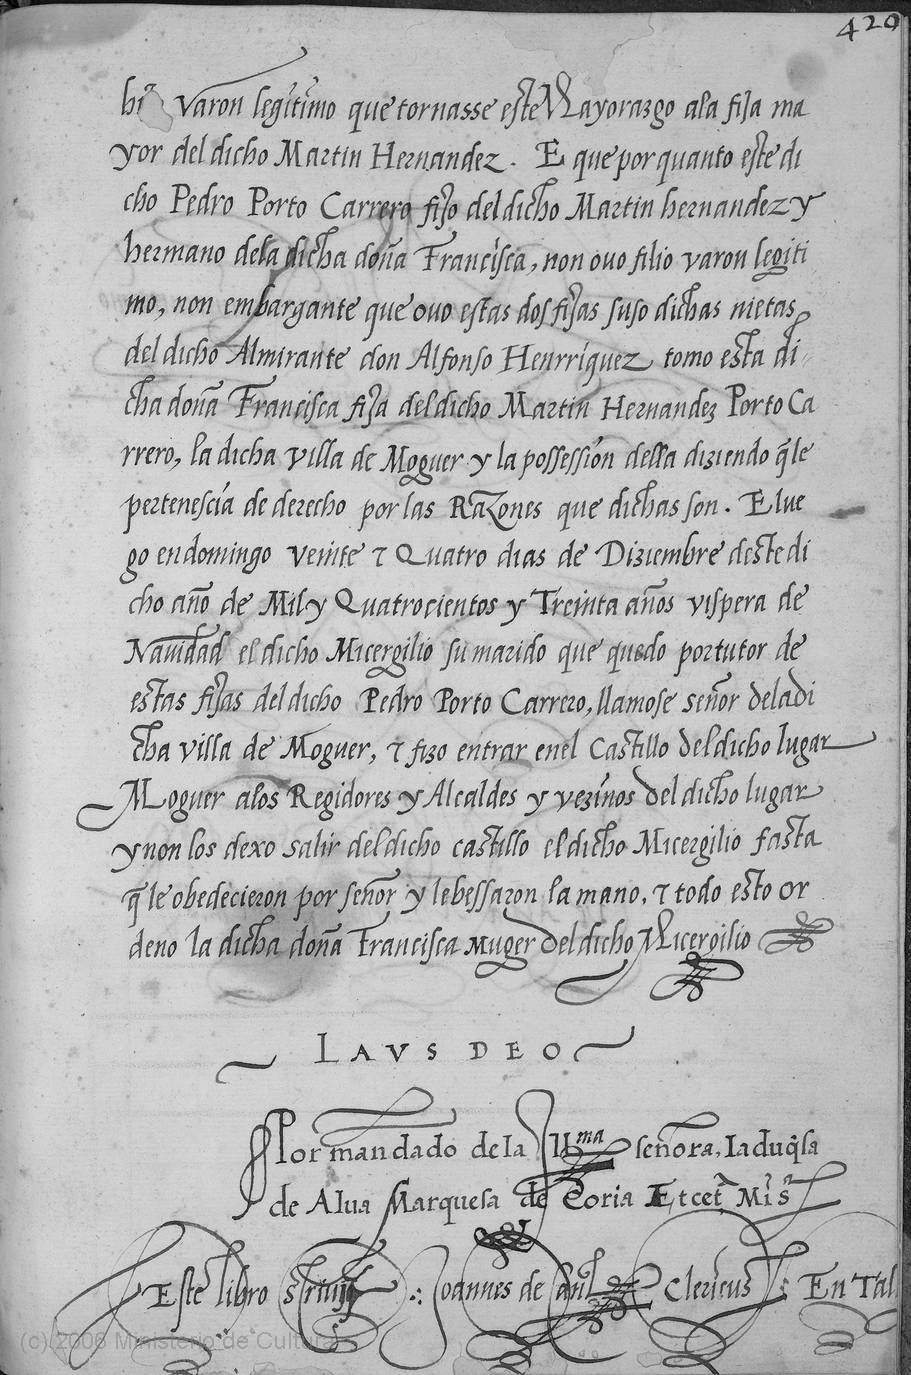 420
varon legítimo que tornasse este Mayorazgo ala fija ma
yor del dicho Martin Hernandez. E que por quanto este di
cho Pedro Porto Carrero fijo del dicho Martin hernandez y
hermano dela dicha doña Francisca, non ouo filio varon legiti
mo, non embargante que ouo estas dos fijas suso dichas nietas
del dicho Almirante don Alfonso Henrríquez tomo esta di
cha doña Francisca fija del dicho Martin Hernandez Porto Ca
rrero, la dicha villa de Moguer y la possessión della diziendo q̃ le
pertenescía de derecho por las Razones que dichas son. E lue
go en domingo veinte τ Quatro dias de Diziembre deste di
cho año de Mil y Quatrocientos y Treinta años vispera de
Navidad el dicho Micergilio su marido que quedo por tutor de
estas fijas del dicho Pedro Porto Carrero, llamose señor dela di
cha villa de Moguer, τ fizo entrar enel Castillo del dicho lugar
Moguer alos Regidores y Alcaldes y vezínos del dicho lugar
y non los dexo salir del dicho castillo el dicho Micergilio fasta
q̃ le obedecieron por señor y le bessaron la mano, τ todo esto or
deno la dicha doña Francisca muger del dicho Micergilio
LAVS DEO
Por mandado de la Illma señora, la duq̃sa
de Alua Marquesa de Coria Etcet. Mi sª
Este libro scripsit Joannes de Clericus En Tal
(c) 2006 Ministerio de Cultura